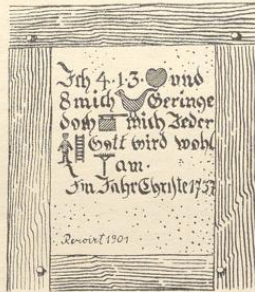 Ich 4·1·3· und
8 mich Geringe
doch mich Jeder
Gott wird wohl
am.
Im Jahr Christe 1757
Renovirt 1901